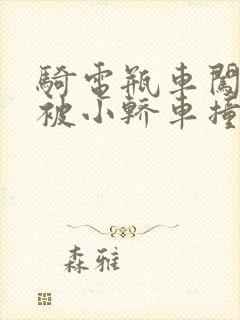 騎電瓶車闖
被小轎車撞
森雅